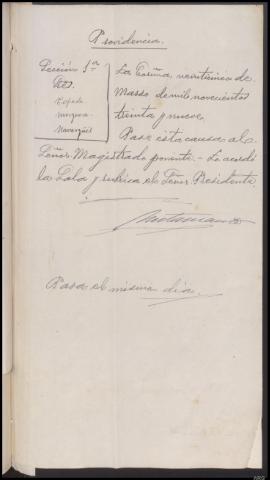 Providencia.
Sección 1ª
Sres.
Tejada
Marqués
La Coruña veinticinco de
Marzo de mil novecientos
treinta y nueve.
Pase esta causa al
Señor Magistrado ponente.- Lo acordó
la Sala y rubrica el Señor Presidente.
Pasa el mismo día.